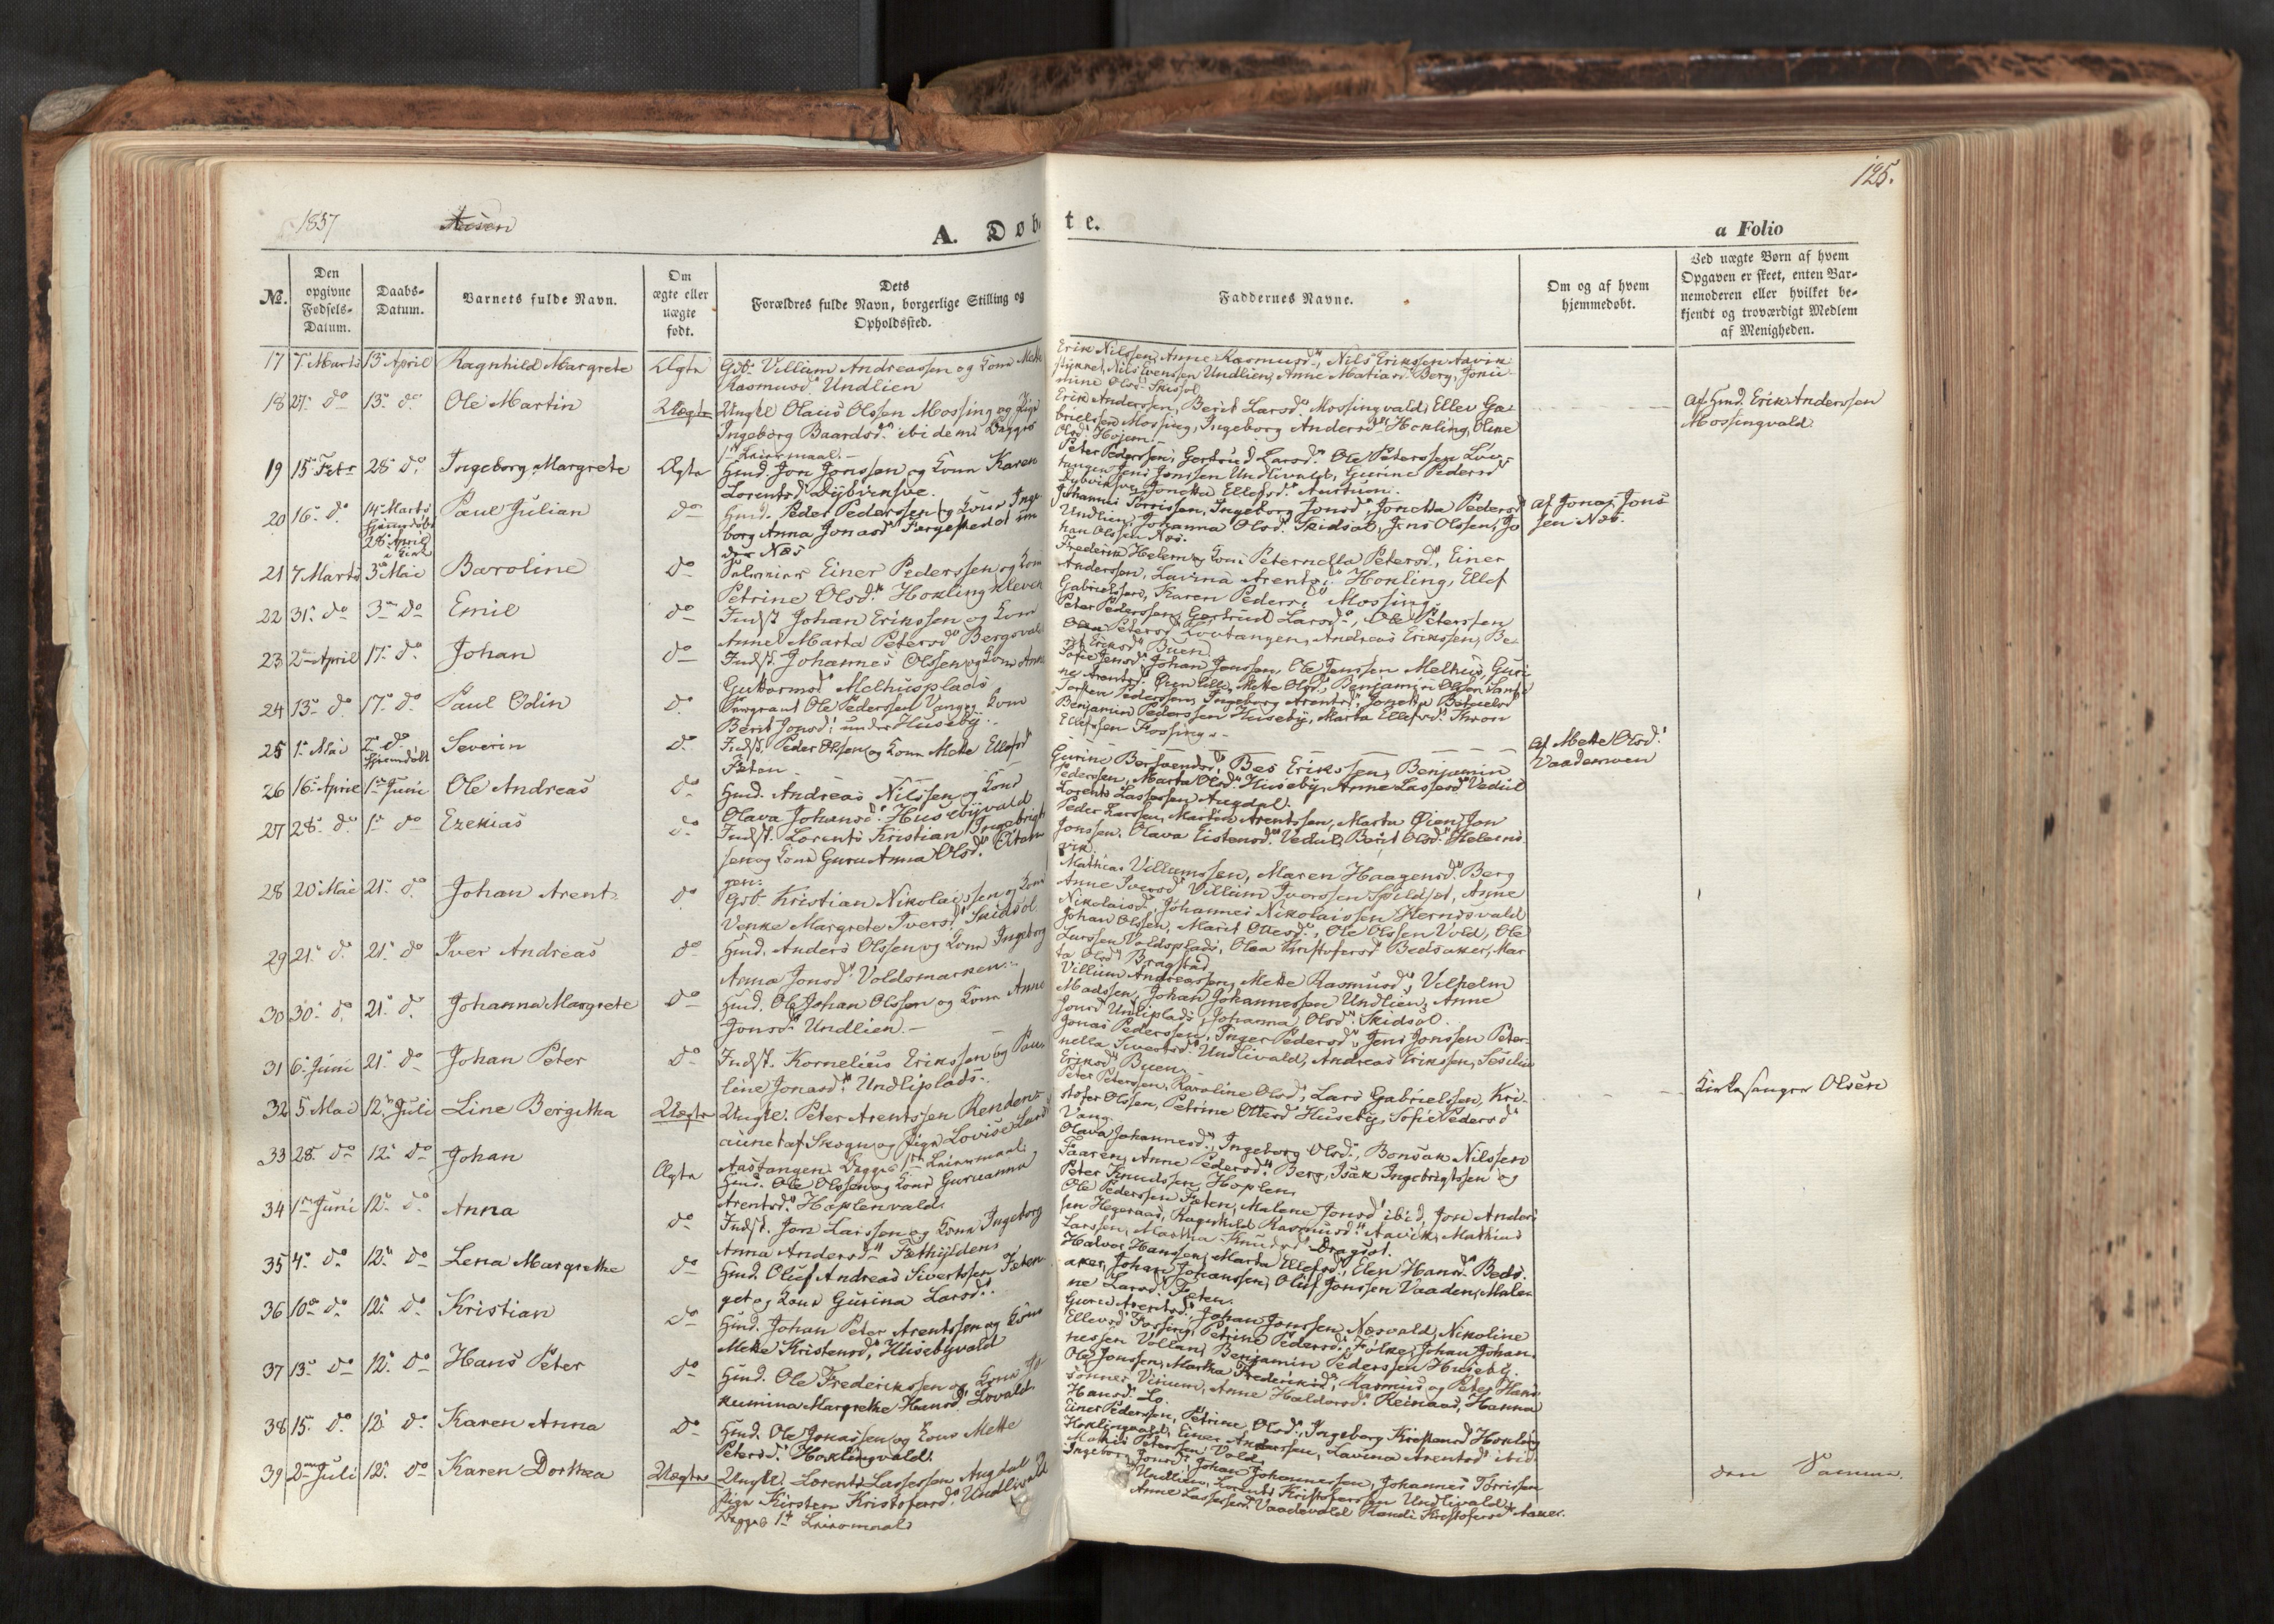 125.
1857 Aasen
A. Døbte.
a Folio
№.
Den opgivne Fødsels-Datum.
Daabs-Datum.
Barnets fulde Navn.
Om ægte eller uægte født.
Dets Forældres fulde Navn, borgerlige Stilling og Opholdssted.
Faddernes Navne.
Om og af hvem hjemmedøbt.
Ved uægte Børn af hvem Opgaven er skeet, enten Barnemoderen eller hvilket bekjendt og troværdigt Medlem af Menigheden.
17 7 Marts 13 April Ragnhild Margrete Ægte Gbr. Villum Andreassen og Kone Mette
Rasmusd. Undlien
Erik Nilssen, Anne Rasmusd., Nils Erikssen Aavik
stykket, Nils Evenssen Undlien, Anne Matiasd. Berg, Joni-
mine Olsd. Skissol
18 27 do 13 do Ole Martin Uægte Ungkl Olaus Olssen Mossing og Pige
Ingeborg Baardsd. ibidem: Begges
1ste Leiermaal.
Erik Anderssen, Berit Larsd. Mossingvald, Ellev Ga-
brielssen Mossing, Ingeborg Andersd. Hokling, Oline
Olsd. Hojem
Af Hmd. Erik Anderssen
Mossingvald
19 15 Febr 28 do Ingeborg Margrete Ægte Hmd. Jon Jonssen og Kone Karen
Lorentsd. Dybviksve.
Peter Pederssen, Gertrud Larsd. Ole Peterssen Lov-
tangen, Jens Jonssen Undlivald, Gurine Pedersd
Dybviksve, Jonetta Ellefsd. Austuen.
20 16 do 14 Marts
hjemmedøbt
28 April
i Kirk Paul Julian do Hmd. Peder Pederssen og Kone Inge
borg Anna Jonasd. Fergestedet un
der Næs
Johannes Torrissen, Ingeborg Jonsd, Jonetta Pedersd
Undlien, Johanna Olsd. Skidsol, Jens Olssen, Jo
han Olssen Næs.
Af Jonas Jons
sen Næs.
21 7 Marts 3 Mai Baroline do Einer Pederssen og Kone
Petrine Olsd. Hokling Kleven
Frederik Helem og Kone Peternella Petersd., Einer
Anderssen, Lavina Arentsd. Hokling, Ellef
Gabrielssen, Karen Pedersd. Mossing.
22 31 do 3 do Emil do Indst Johan Erikssen og Kone
Anne Marta Petersd. Bergsvald
Peter Pederssen, Gertrud Larsd., Ole Peterssen
Olea Petersd. Lovtangen, Andreas Erikssen, Be
rit Eriksd. Buen
23 2 April 17 do Johan do Indst. Johannes Olssen og Kone Anne
Guttormsd. Melhusplads
Sofie Jensd. Johan Jonssen, Ole Jenssen Melhus, Guri
ne Arentsd. Øien lille, Mette Olsd., Benjamin Olssen
24 13 do 17 do Paul Odin do Ole Pederssen Vang og Kone
Berit Jonsd. under Huseby.
Torsten Pederssen, Ingeborg Arentsd., Jonetta Betuelsd
Benjamin Pederssen Huseby, Marta Ellefsd. Thron
Ellefssen Fossing
25 1 Mai 2 do
hjemdøbt Severin do Indst. Peder Olssen og Kone Mette Ellefsd
Fæten
Af Mette Olsd.
Vaademoen
26 16 April 1 Juni Ole Andreas do Hmd. Andreas Nilssen og Kone
Olava Johansd. Husebyvald
Gurine Bersvendsd. Bes Erikssen, Benjamin
Pederssen, Marta Olsd. Huseby, Anne Lassesd. Vedul
Lorents Lassessen Augdal.
27 28 do 1 do Ezekias do Indst. Lorents Kristian Ingebrigt
sen og Kone Guru Anna Olsd.
gen:
Peder Larssen, Martin Arentssen, Marta Øien, Jon
Jonssen. Olava Eistensd. Vedul, Berit Olsd. Helems
vik.
28 20 Mai 21 do Johan Arent do Gbr. Kristian Nikolaissen og Kone
Venke Margrete Iversd. Skidsol
Mathias Villumssen, Maren Haagensd. Berg
Anne Iversd. Villum Iverssen Spildset, Anne
Nikolaisd., Johannes Nikolaissen Hernesvald
29 21 do 21 do Iver Andreas do Hmd. Anders Olssen og Kone Ingeborg
Anna Jonsd. Voldsmarken.
Johan Olssen, Marit Ottesd., Ole Olssen Vold, Ole
Larssen Voldsplads, Olea Kristofersd. Bedsaker, Mar
ta Olsd. Bragstad
30 30 do 21 do Johanna Margrete do Hmd. Ole Johan Olssen og Kone Anne
Jonsd. Undlien.
Villum Andreassen, Mette Rasmusd., Vilhelm
Madssen, Johan Johannessen Undlien, Anne
Jonsd. Undliplads, Johanna Olsd. Skidsol.
31 6 Juni 21 do Johan Peter do Indst. Kornelius Erikssen og Pau
line Jonasd. Undliplads.
Jonas Pederssen, Inger Pedersd., Jens Jonssen Peter-
nella Sivertsd. Undlivald, Andreas Erikssen, Sesilie
Eriksd. Buen
32 5 Mai 12 Juli Line Bergitha Uægte Ungkl. Peter Arentssen Renden-
aunet af Skogn og Pige Lovise Larsd
Aastangen. Begges 1ste Leiermaal.
Peter Peterssen, Karoline Olsd., Lars Gabrielssen, Kri-
stofer Olssen, Petrine Ottesd. Huseby, Sofie Pedersd
Vang.
Kirkesanger Olsen
33 28 do 12 do Johan Ægte Hmd. Ole Olssen og Kone Guruanna
Arentsd. Hoplenvald
Olava Johannesd., Ingeborg Olsd., Bonsak Nilssen
Faaren, Anne Pedersd. Berg, Isak Ingebrigtssen og
Peter Knudssen Hoplen
34 1 Juni 12 do Anna do Indst. Jon Larssen og Kone Ingeborg
Anna Andersd. Fethylden
Ole Pederssen Fæten, Malene Jonsd. ibid, Jon Anders
sen Hegeraas, Ragnhild Rasmusd. Aavik, Mathias
Larssen, Martha Knudsd. Dragset.
35 4 do 12 do Lena Margrethe do Hmd. Oluf Andreas Sivertssen Fæten
get og Kone Gurina Larsd.
Halvor Hanssen, Marta Ellefsd., Elen Hansd. Beds-
aker, Johan Johanssen, Oluf Jonssen Vaaden, Male
ne Larsd. Fæten.
36 10 do 12 do Kristian do Hmd. Johan Peter Arentssen og Kone
Mette Kristensd. Husebyvald
Guru Arentsd. Johan Jonssen Næsvald, Nikoline
Ellevsd. Fossing, Petrine Pedersd. Folke, Johan Johan-
nessen Vollan, Benjamin Pederssen Huseby.
37 13 do 12 do Hans Peter do Hmd. Ole Frederikssen og Kone
kumina Margrethe Hansd. Lovald.
Ole Jonssen, Martha Frederiksd., Rasmus og Peter Hans-
sønner Vinum, Anne Haldorsd. Reinaas, Hanna
Hansd. Lo.
38 15 do 12 do Karen Anna do Hmd. Ole Jonassen og Kone Mette
Petersd. Hoklingvald.
Einer Pederssen, Petrine Olsd., Ingeborg Kristensd. Hokling
Hoklingvald, Einer Anderssen, Lavina Arentsd. ibid.
Mathis Peterssen Vold
39 2 Juli 12 do Karen Dorthea Uægte Ungkl. Lorents Lassessen Augdal
Pige Kirsten Kristofersd. Undlivald
Begges 1ste Leiermaal
Ingeborg Jonsd., Johan Johannessen, Johannes Torrissen
Undlien, Lorents Kristoferssen Undlivald,
Anne Lassessen Vaadevald Randi Kristofersd. Aaker.
den Samme.